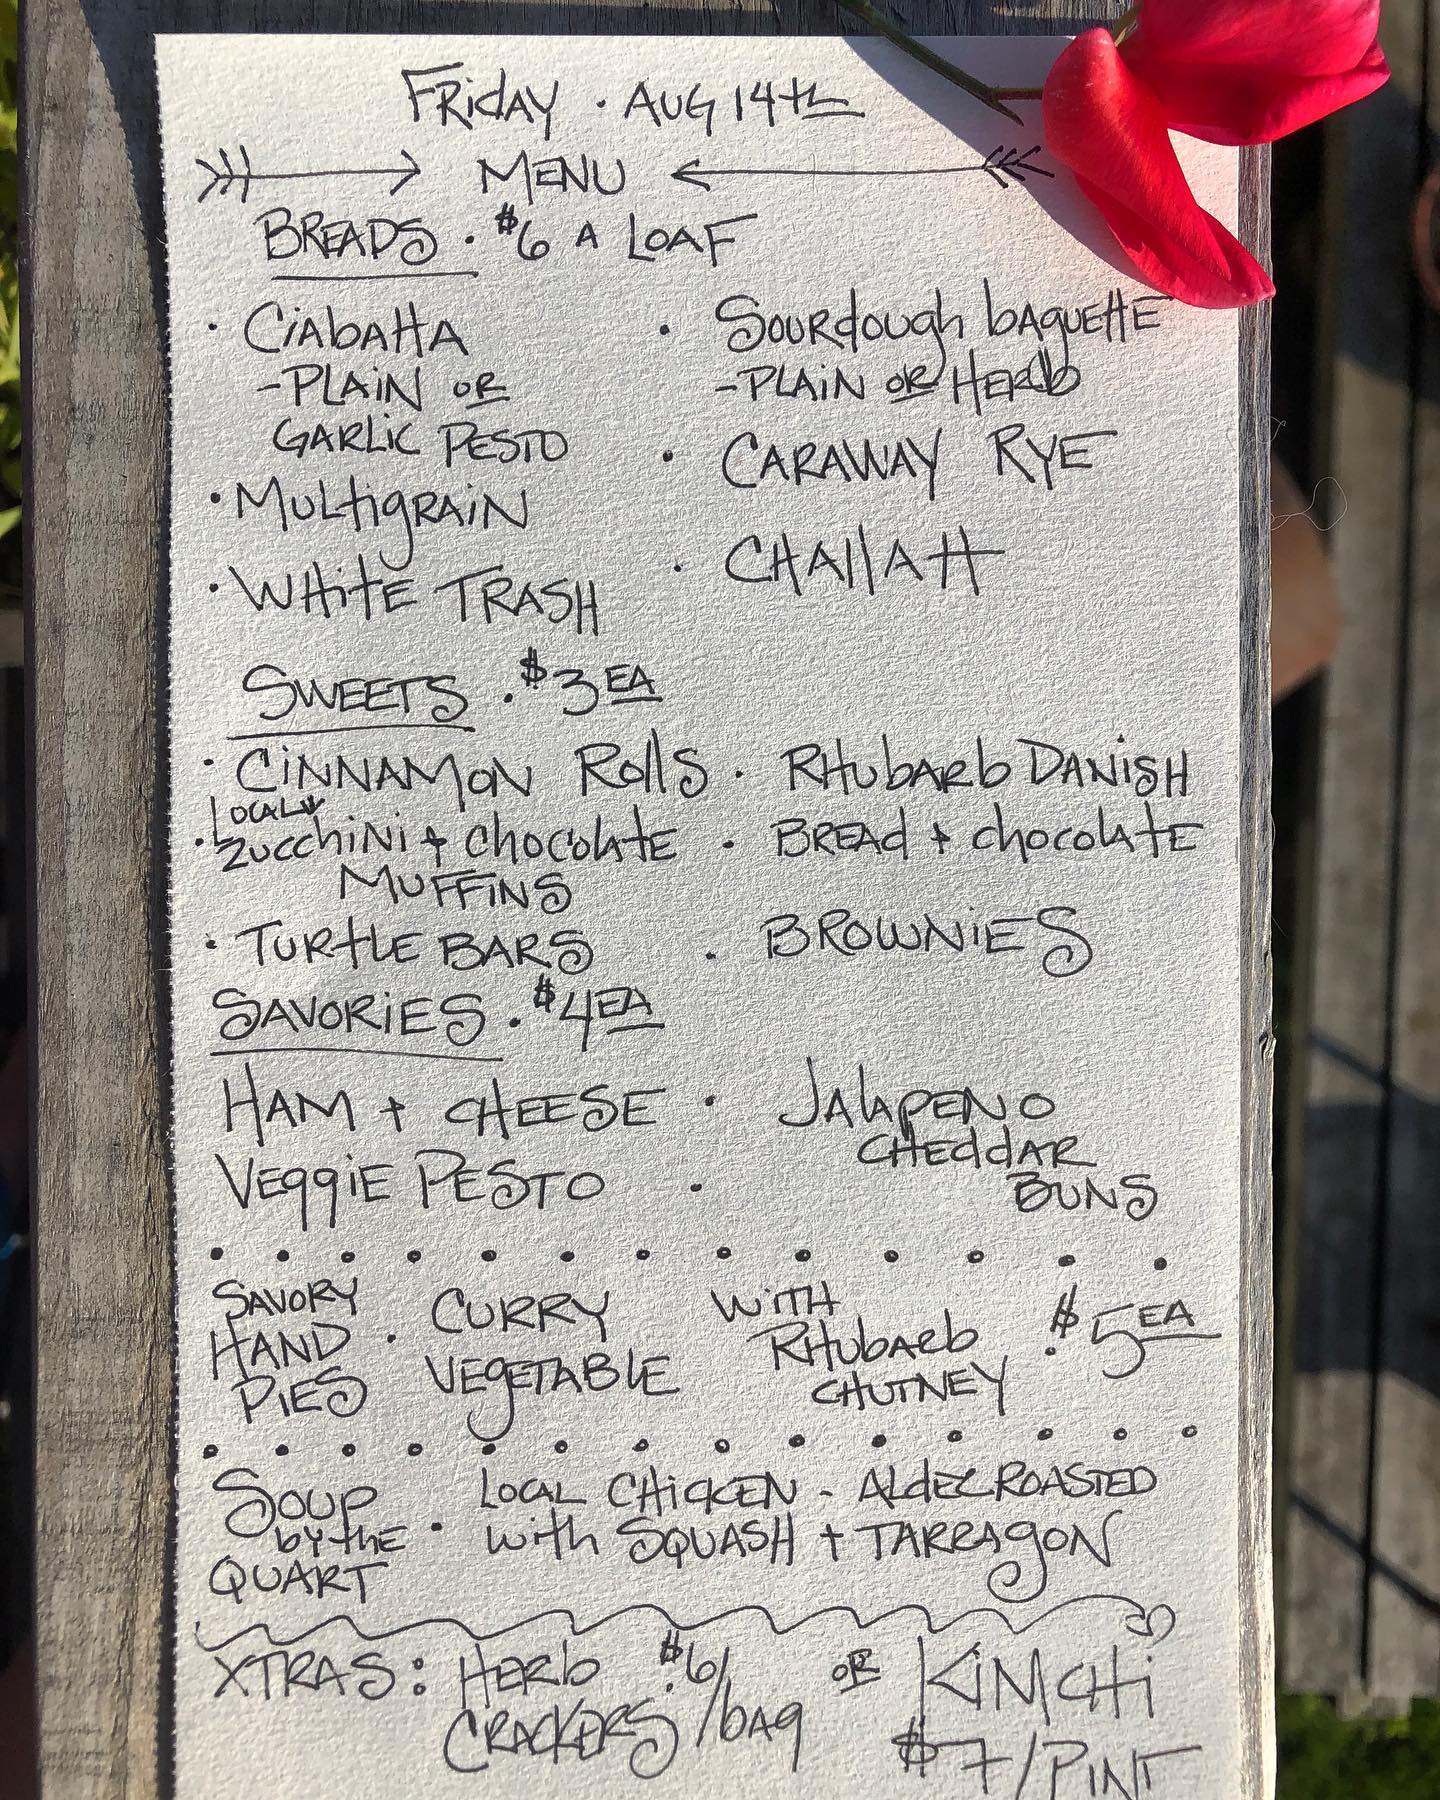 Friday · Aug 14th
MENU
BREADS · $6 A LOAF
· Ciabatta
-PLAIN OR
GARLIC PESTO
· Multigrain
· WHITE TRASH
· Sourdough baguette
-PLAIN OR Herb
· CARAWAY RYE
· CHALLAH
SWEETS · $3 EA
· CINNAMON Rolls · RHubarb DANISH
LOCAL
· Zucchini + chocolate · BREAd + chocolate
MUFFINS
· TURTLE BARS · BROWNIES
SAVORIES · $4 EA
HAM + CHEESE · JALAPENO
CHEddAR
VEggiE PESTO · BUNS
SAVORY
HAND
PIES · CURRY
VEGETABLE
WITH
RHubarb
CHUTNEY · $5 EA
Soup
by the
QUART · LOCAL CHICKEN - ROASTED
with SQUASH + TARRAGON
XTRAS: HERb $6/bAg OR KIMCHI
CRACKERS $7/PINT